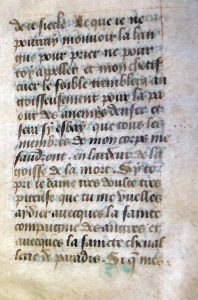 de ce siecle Et que ie ne
pourray mouuoir la lan
gue pour prier ne pour
toy appeller et mon chetif
cuer le foible tremblera an
goisseusement pour la pa
our des anemis denfer et
sera sy esbay que tous les
membres de mon corps me
faudront en lardeur de la
goisse de la mort Sy te
pri ie dame tres doulce tres
piteuse que tu me vueilles
aydier auecques la saincte
compaignie des angres et
auecques la saincte cheual
lerie de paradis Si q mes